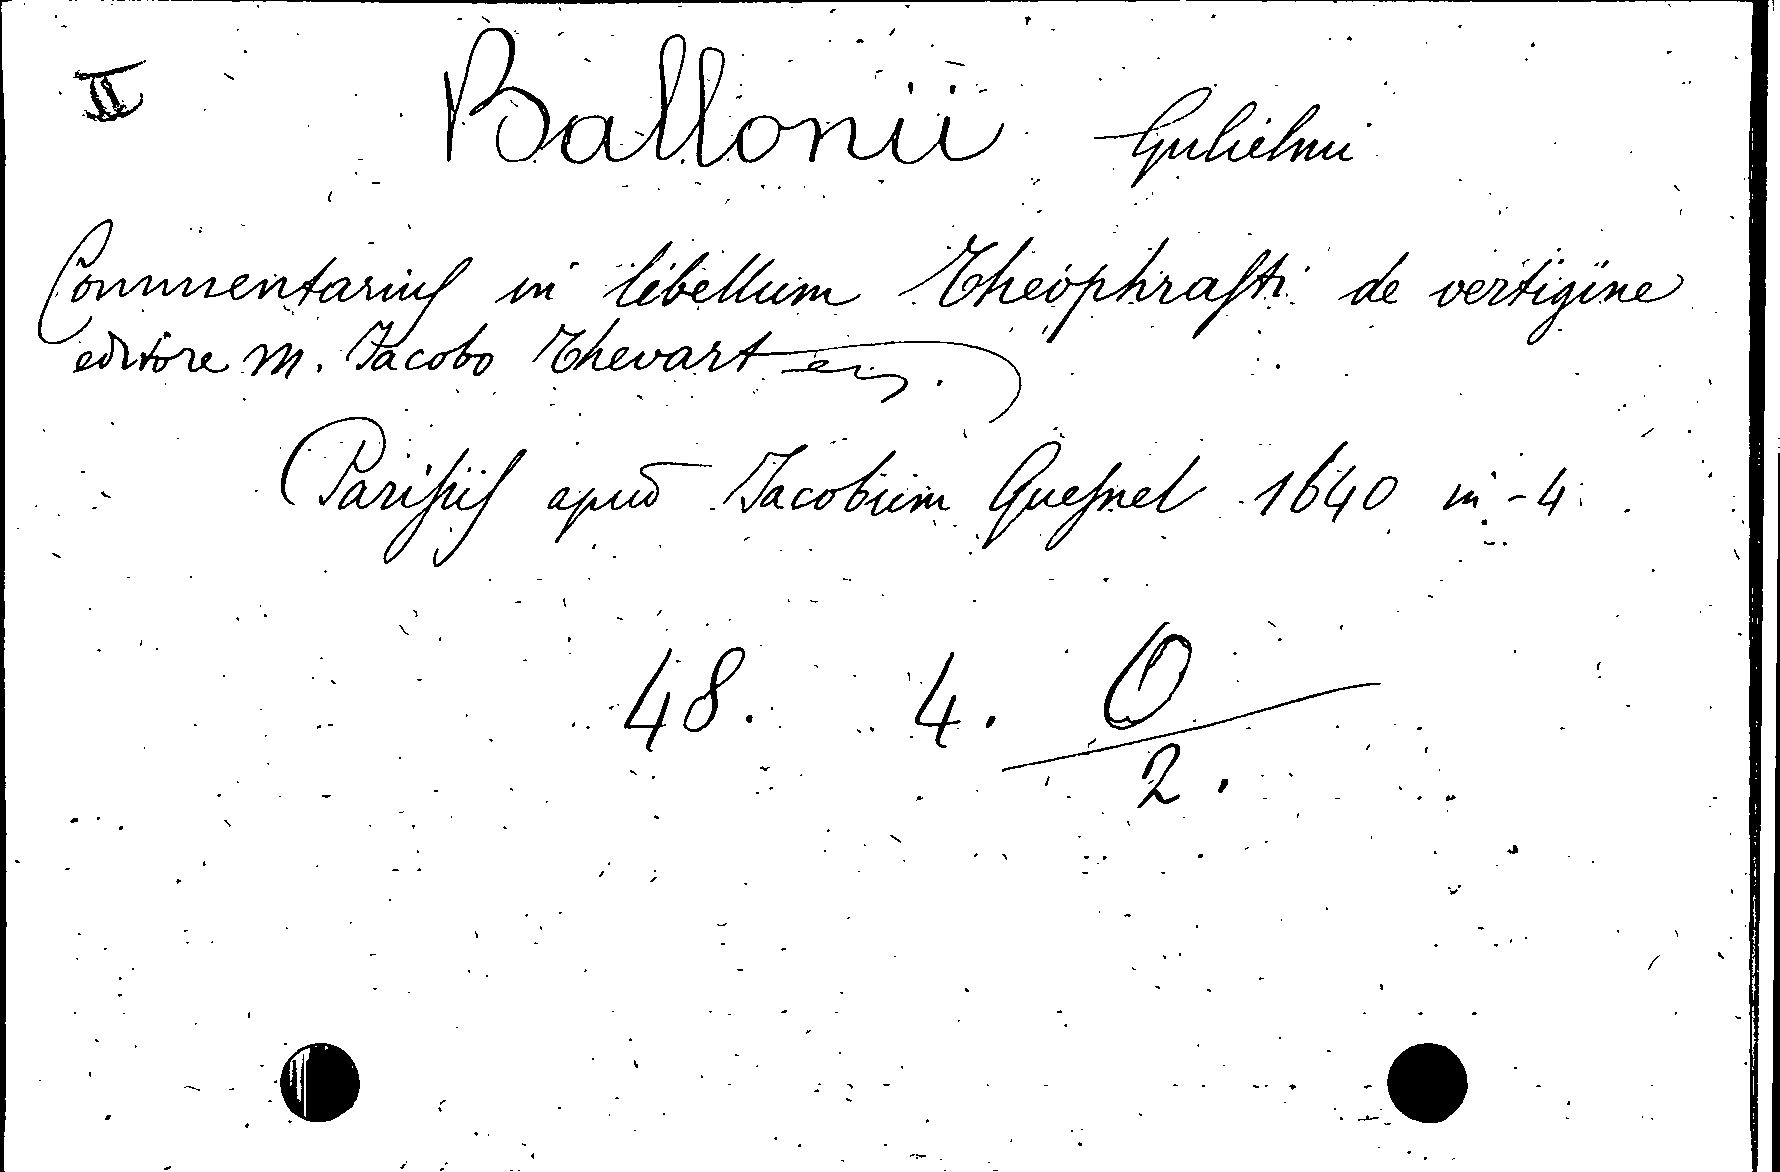 II Ballonii Gulielmi
Commentarius in libellum Theophrasti de vertigine
editore M. Jacobo Thevart
Parisiis apud Jacobum Quesnel 1640 in-4.
48. 4. O
2.